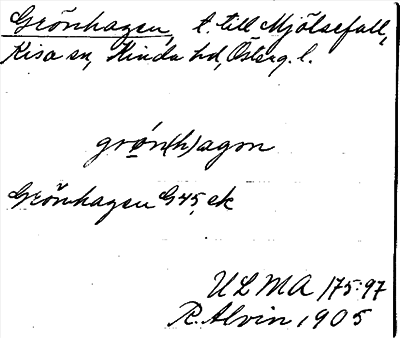 Grönhagen, t. till Mjölsefall,
Kisa sn, Kinda hd, Österg. l.
grǿn(h)agɔn
Grönhagen G45, ek
ULMA 175:97
R. Alvin, 1905